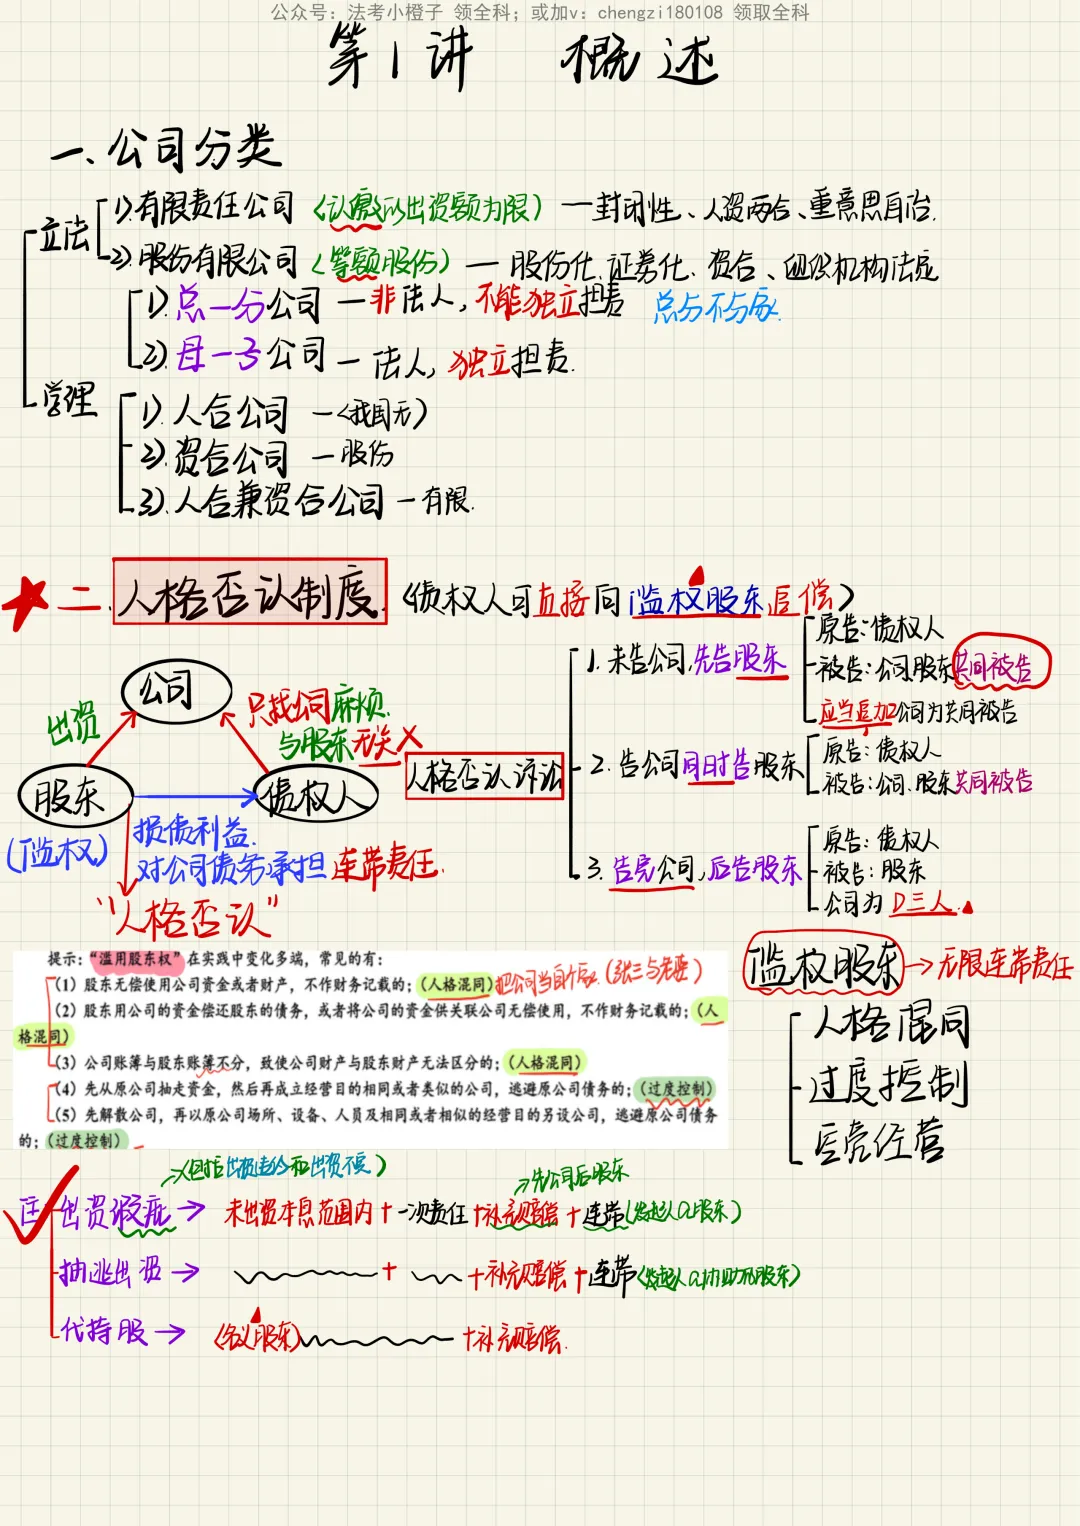 公众号：法考小橙子 领全科；或加v：chengzi180108 领取全科
第1讲 概述
一、公司分类
立法
1).有限责任公司（认缴以出资额为限）—封闭性、人资两合、重意思自治.
2).股份有限公司（等额股份）—股份化、证券化、资合、组织机构法定
1).总—分公司—非法人，不能独立担责 总与不与家
2).母—子公司—法人，独立担责.
学理
1).人合公司—（我国无）
2).资合公司—股份
3).人合兼资合公司—有限.
二、人格否认制度.（债权人可直接向滥权股东追偿）
公司
出资
只找公司麻烦.
与股东无关X
股东
债权人
(滥权)
损债利益.
对公司债务承担连带责任.
"人格否认"
人格否认诉讼
1.未告公司,先告股东
原告:债权人
被告:公司.股东共同被告
应当追加公司为共同被告
2.告公司同时告股东
原告:债权人
被告:公司、股东共同被告
3.告完公司,后告股东
原告:债权人
被告:股东
公司为D三人.
提示：“滥用股东权”在实践中变化多端，常见的有：
（1）股东无偿使用公司资金或者财产，不作财务记载的；（人格混同）
（2）股东用公司的资金偿还股东的债务，或者将公司的资金供关联公司无偿使用，不作财务记载的；（人
格混同）
（3）公司账簿与股东账簿不分，致使公司财产与股东财产无法区分的；（人格混同）
（4）先从原公司抽走资金，然后再成立经营目的相同或者类似的公司，逃避原公司债务的；（过度控制）
（5）先解散公司，再以原公司场所、设备、人员及相同或者相似的经营目的另设公司，逃避原公司债务
的；（过度控制）
滥权股东→无限连带责任
人格混同
过度控制
空壳经营
出资瑕疵→未出资本息范围内+一次责任+补充赔偿+连带(发起人a股东)
先公司后股东
抽逃出资→ + +补充赔偿+连带
代持股→(名义股东) +补充赔偿.